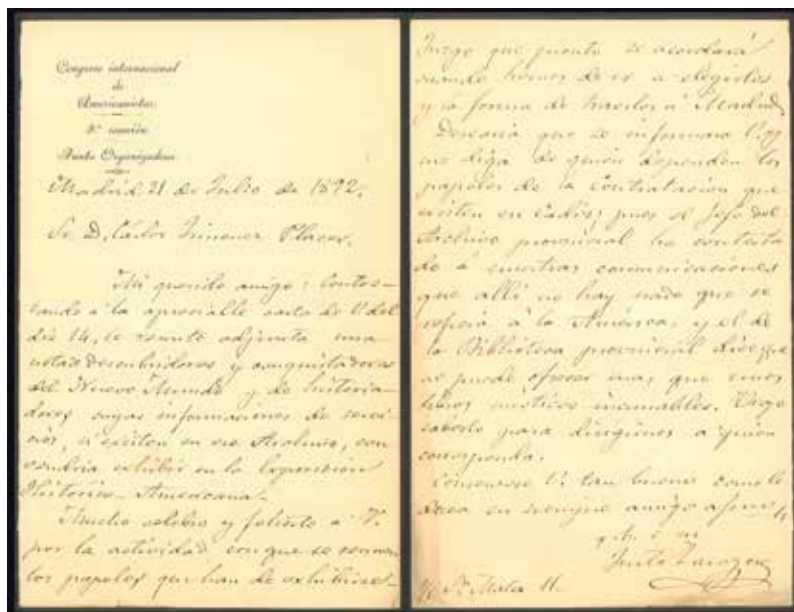 Congreso internacional
de
Americanistas.
9ª reunión
Junta Organizadora
Madrid 21 de Julio de 1892.
Sr. D. Carlos Jimenez Placer.
Mi querido amigo: Contes-
tando á la apreciable carta de V. del
día 14, le remito adjunta una
nota descubridores y conquistadores
del Nuevo Mundo y de historia-
dores cuyas informaciones de servi-
cios, si existen en ese Archivo, con-
vendria exhibir en la Exposición
Historico-Americana.
Mucho celebro y felicito á V.
por la actividad con que se
los papeles que han de exhibirse.
Juzgo que pronto se acordará
cuando hemos de ir a elegirlos
y la forma de traerlos á Madrid
Desearia que se informara V. y
me diga de quién dependen los
papeles de la Contratacion que
existen en Cadiz; pues el Jefe del
Archivo provincial ha contesta-
do á nuestras comunicaciones
que allí no hay nada que se
refiera á la América, y el de
la Biblioteca provincial dice que
no puede ofrecer mas que unos
libros misticos incunables. Urge
saberlo para dirigirnos a quien
corresponda.
Consérvese V. tan bueno como le
desea su siempre amigo afmo.
q. b. s. m.
Justo Zaragoza